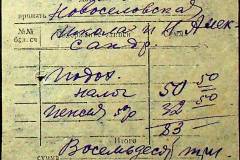 принять Новоселовская
№№ школа и Н Алек-
бух. сч. сандр.
Подох.
налог 50 50
пенсия 5% 32 50
83
Итого
сумма Восемьдесят три